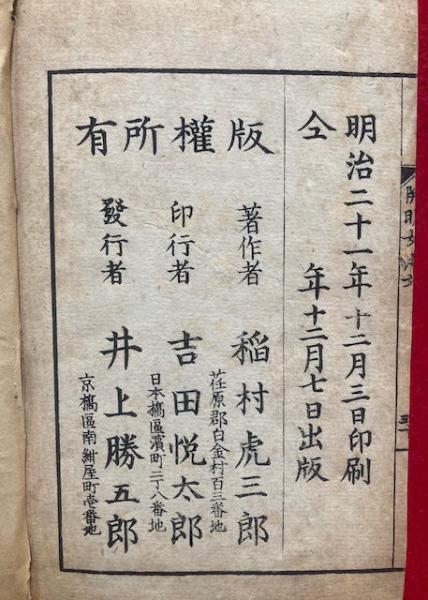 明治二十一年十二月三日印刷
仝年十二月七日出版
版權所有
著作者 稲村虎三郎
荏原郡白金村百三番地
印行者 吉田悦太郎
日本橋區濱町二丁八番地
發行者 井上勝五郎
京橋區南紺屋町壱番地